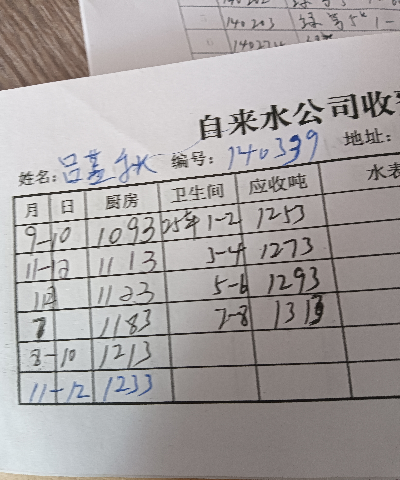 140203
140274
自来水公司收
姓名: 吕 编号: 140339 地址:
月 日 厨房 卫生间 应收吨 水表
9-10 1093 25年 1-2 1253
11-12 1113 3-4 1273
1123 5-6 1293
7 1183 7-8 1313
8-10 1213
11-12 1233